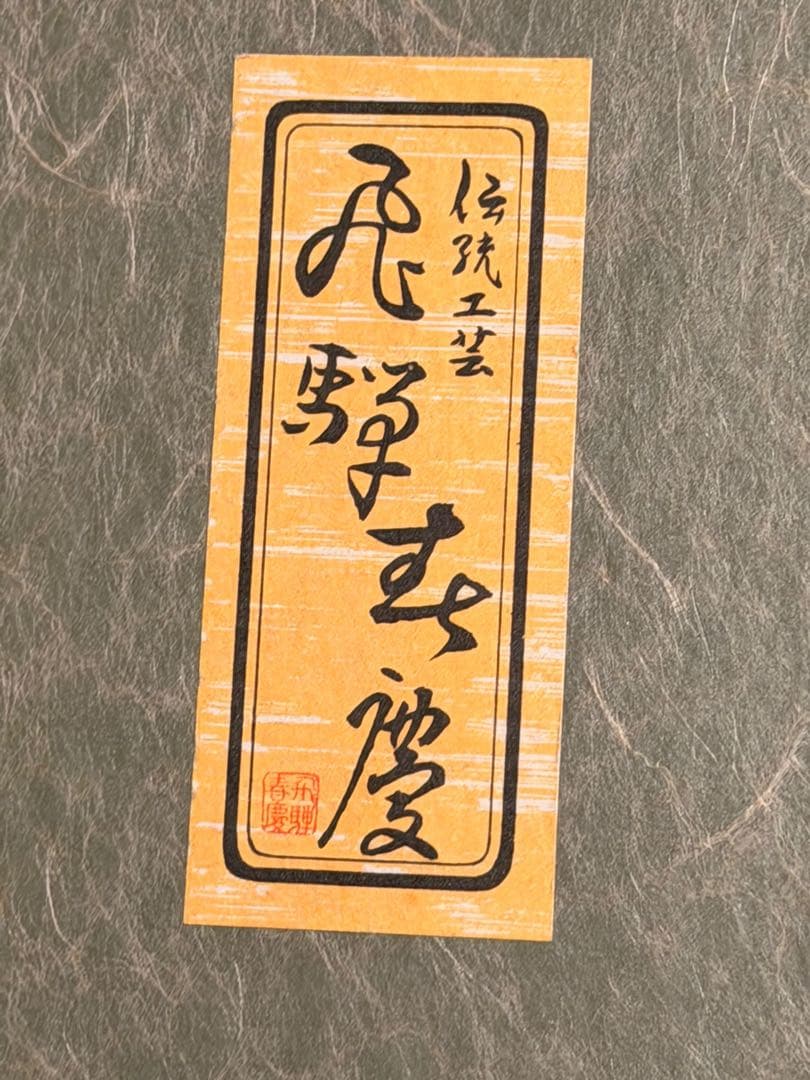 伝統工芸
飛騨春慶
飛騨
春慶